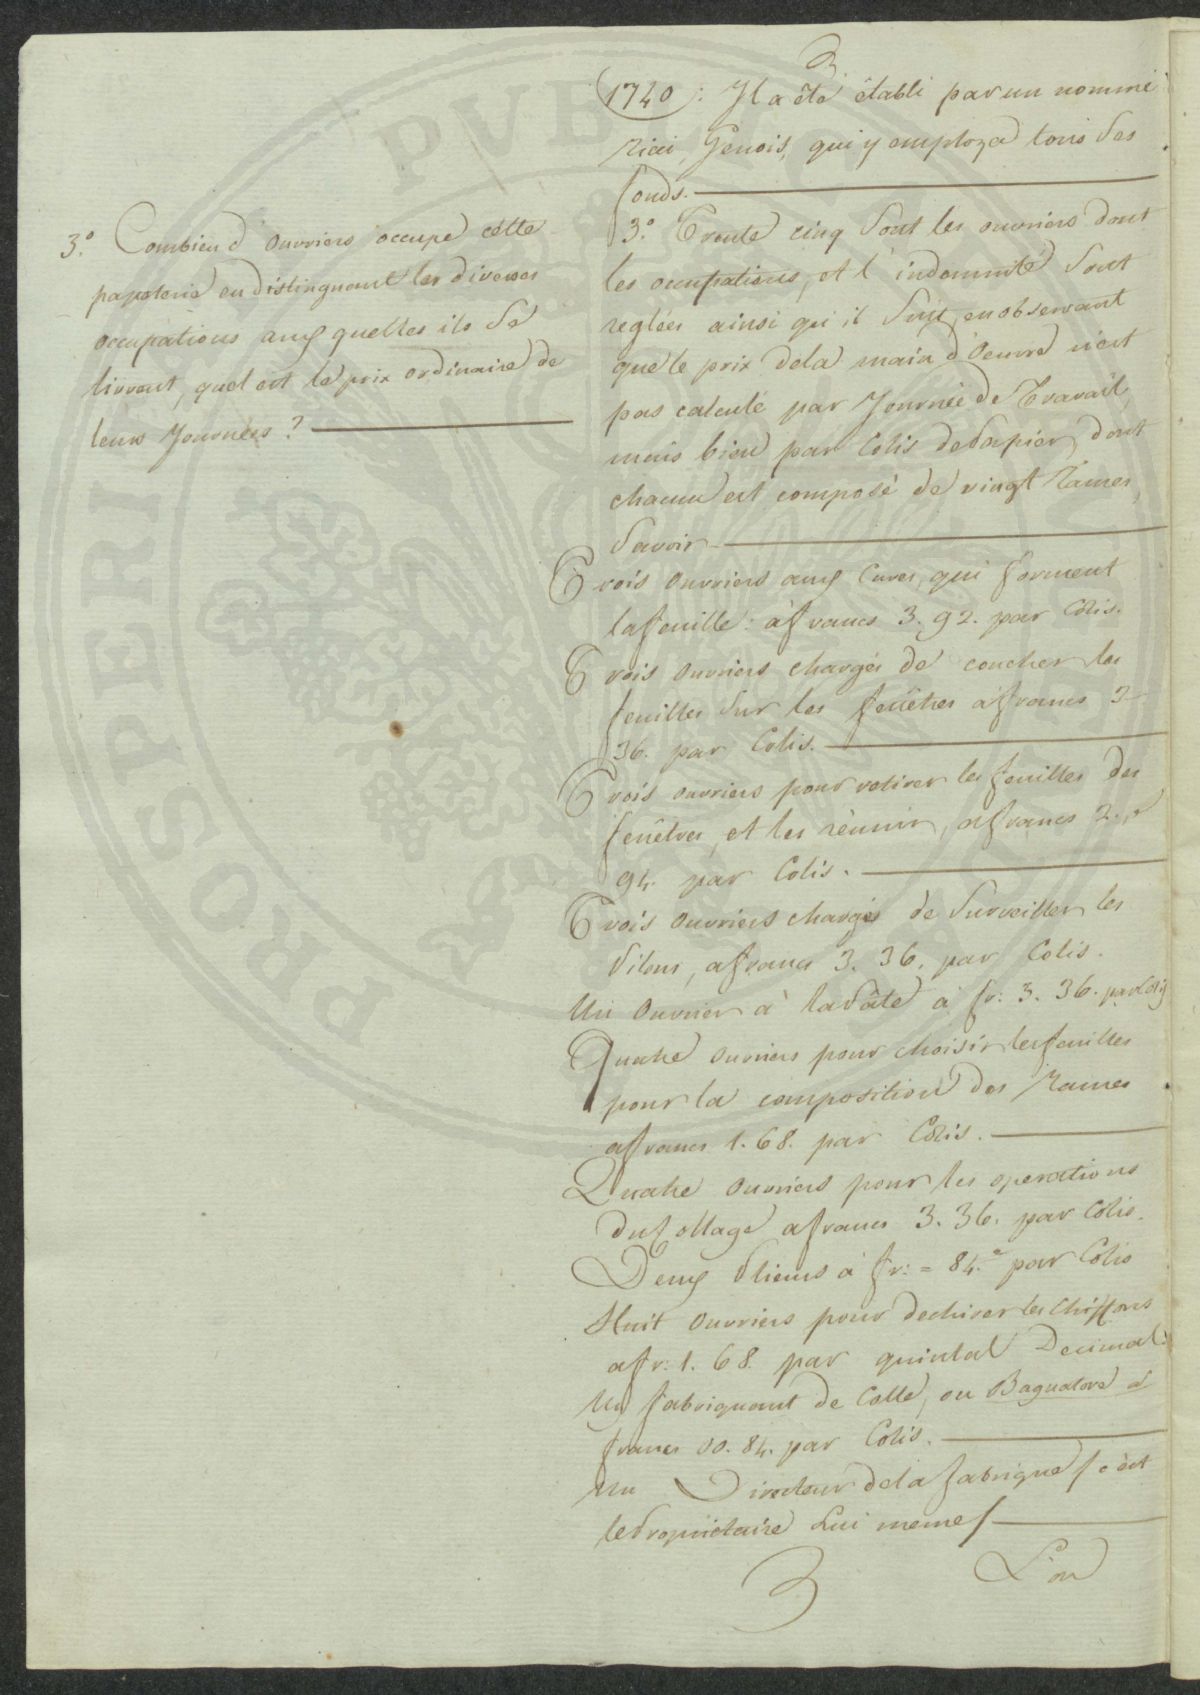 3.° Combien d'ouvriers occupe cette
papeterie en distinguant les diverses
occupations aux quelles ils se
livrent, quel est le prix ordinaire de
leurs Journées?
1740: Il a été établi par un nommé
Genois, qui y employa tous ses
fonds.
3.° Trente cinq sont les ouvriers dont
les occupations, et l'indemnité sont
reglées ainsi qu'il suit, en observant
que le prix de la main d'Oeuvre n'est
pas calculé par Journée de Travail,
mais bien par Colis de Papier, dont
chacun est composé de vingt Rames,
Savoir
Trois ouvriers aux Cuves, qui forment
la feuille: à francs 3. 92. par Colis.
Trois ouvriers chargés de coucher les
feuilles sur les feûtres a francs 3
36. par Colis.
Trois ouvriers pour retirer les feuilles des
feûtres, et les réunir, a francs 2.
94. par Colis.
Trois ouvriers chargés de Surveiller les
Pilons, a francs 3. 36. par Colis.
Un Ouvrier à la Pâte à fr: 3. 36. par Colis
Quatre ouvriers pour choisir les feuilles
pour la composition des Rames
a francs 1. 68. par Colis.
Quatre Ouvriers pour les operations
du Collage a francs 3. 36. par Colis.
Deux Plieurs à fr: = 84.c par Colis
Huit Ouvriers pour dechirer les Chiffons
a fr: 1. 68. par quintal Decimal.
Un fabriquant de Colle, ou Bagnatore à
francs 00. 84. par Colis.
Un Directeur de la fabrique / c'est
le Propriétaire Lui meme /
L'on
PROSPERI PVBLIC